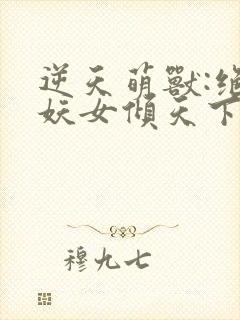 逆天萌獸:絕
妖女傾天下
穆九七